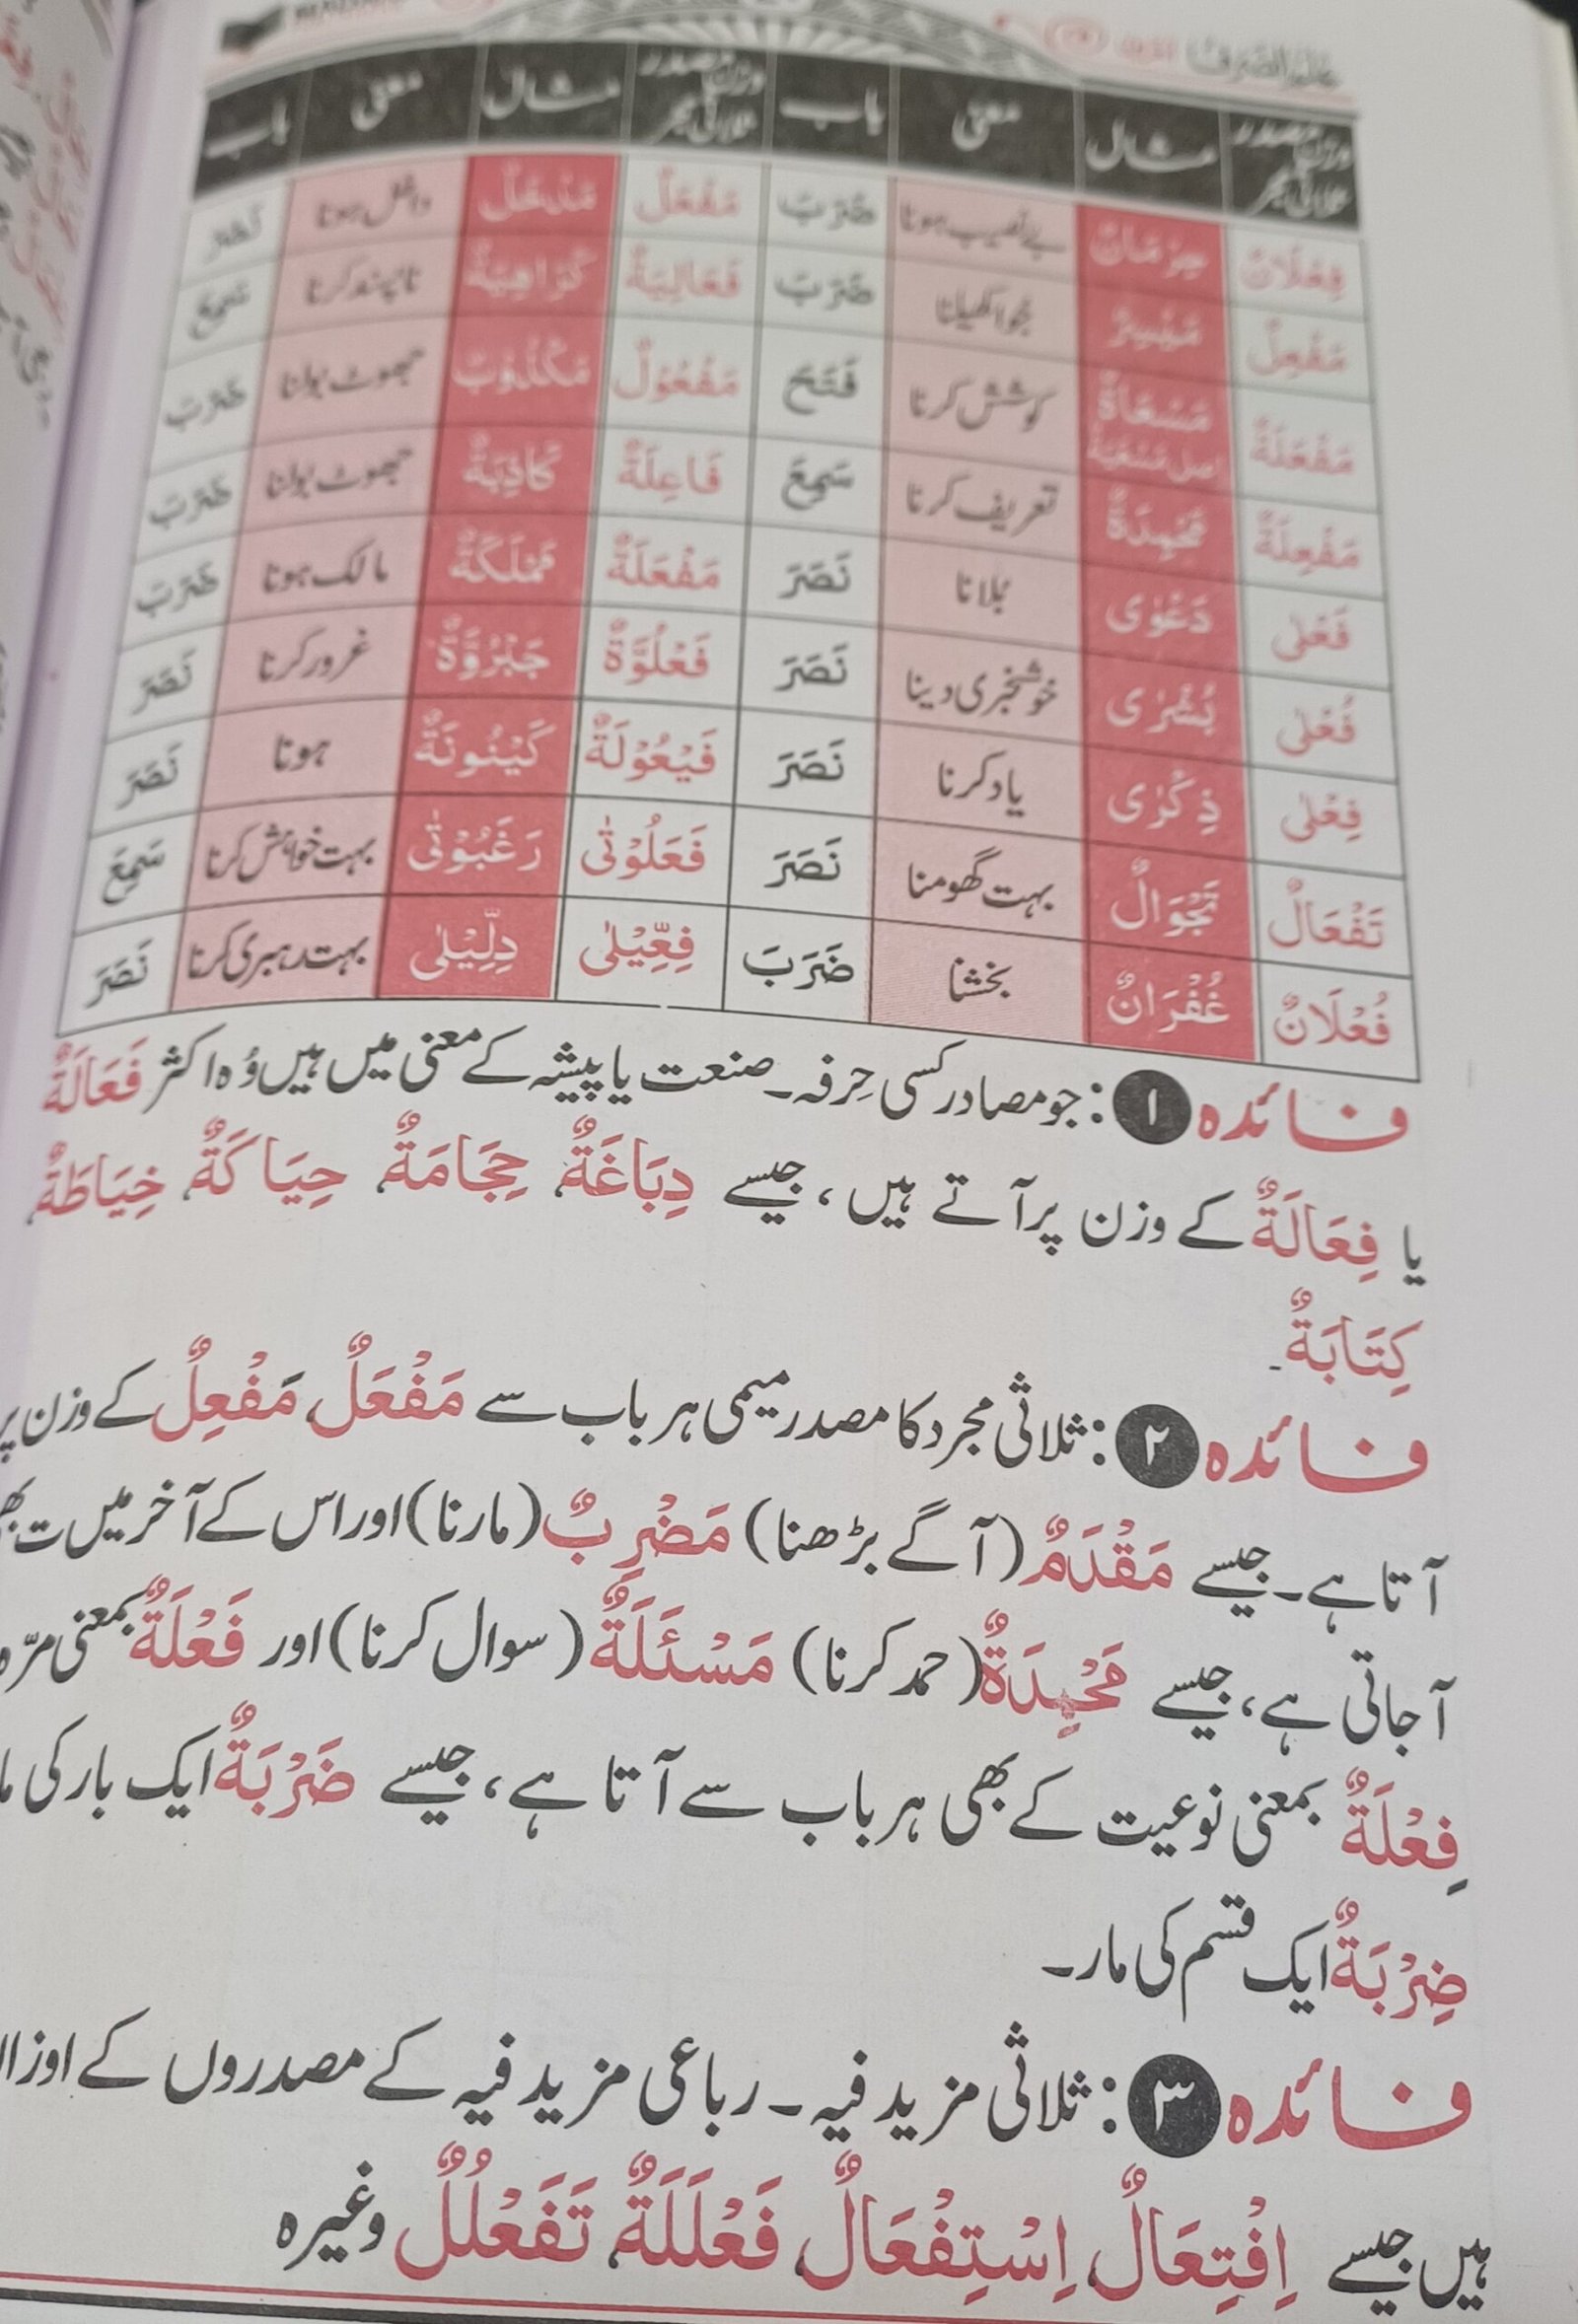 علم الصرف
وزن مصدر ثلاثی مجرد مثال معنی باب وزن مصدر ثلاثی مجرد مثال معنی باب
فِعْلَانٌ حِرْمَانٌ بے نصیب ہونا ضَرَبَ مَفْعَلٌ مَدْخَلٌ داخل ہونا نَصَرَ
مَفْعِلٌ مَيْسِرٌ جوا کھیلنا ضَرَبَ فَعَالِيَةٌ كَرَاهِيَةٌ ناپسند کرنا سَمِعَ
مَفْعَلَةٌ مَسْعَاةٌ اصل مَسْعَيَةٌ کوشش کرنا فَتَحَ مَفْعُوْلٌ مَكْذُوْبٌ جھوٹ بولنا ضَرَبَ
مَفْعِلَةٌ مَحْمِدَةٌ تعریف کرنا سَمِعَ فَاعِلَةٌ كَاذِبَةٌ جھوٹ بولنا ضَرَبَ
فَعْلٰی دَعْوٰی بُلانا نَصَرَ مَفْعَلَةٌ مَمْلَكَةٌ مالک ہونا ضَرَبَ
فُعْلٰی بُشْرٰی خوشخبری دینا نَصَرَ فَعْلُوَّةٌ جَبْرُوَّةٌ غرور کرنا نَصَرَ
فِعْلٰی ذِكْرٰی یاد کرنا نَصَرَ فَيْعُوْلَةٌ كَيْنُونَةٌ ہونا نَصَرَ
تَفْعَالٌ تَجْوَالٌ بہت گھومنا نَصَرَ فَعَلُوْتٰی رَغَبُوْتٰی بہت خواہش کرنا سَمِعَ
فُعْلَانٌ غُفْرَانٌ بخشنا ضَرَبَ فِعِّيْلٰی دِلِّيْلٰی بہت رہبری کرنا نَصَرَ
فائدہ ۱: جو مصادر کسی حِرفہ۔ صنعت یا پیشہ کے معنی میں ہیں وُہ اکثر فَعَالَةٌ
یا فِعَالَةٌ کے وزن پر آتے ہیں، جیسے دِبَاغَةٌ، حِجَامَةٌ، حِيَاكَةٌ، خِيَاطَةٌ،
كِتَابَةٌ۔
فائدہ ۲: ثلاثی مجرد کا مصدر میمی ہر باب سے مَفْعَلٌ، مَفْعِلٌ کے وزن پر
آتا ہے۔ جیسے مَقْدَمٌ (آگے بڑھنا) مَضْرِبٌ (مارنا) اور اس کے آخر میں ت بھی
آجاتی ہے، جیسے مَحْمِدَةٌ (حمد کرنا) مَسْئَلَةٌ (سوال کرنا) اور فَعْلَةٌ بمعنی مرّہ
فِعْلَةٌ بمعنی نوعیت کے بھی ہر باب سے آتا ہے، جیسے ضَرْبَةٌ ایک بار کی
ضِرْبَةٌ ایک قسم کی مار۔
فائدہ ۳: ثلاثی مزید فیہ۔ رباعی مزید فیہ کے مصدروں کے
ہیں جیسے اِفْتِعَالٌ، اِسْتِفْعَالٌ، فَعْلَلَةٌ، تَفَعْلُلٌ وغیرہ